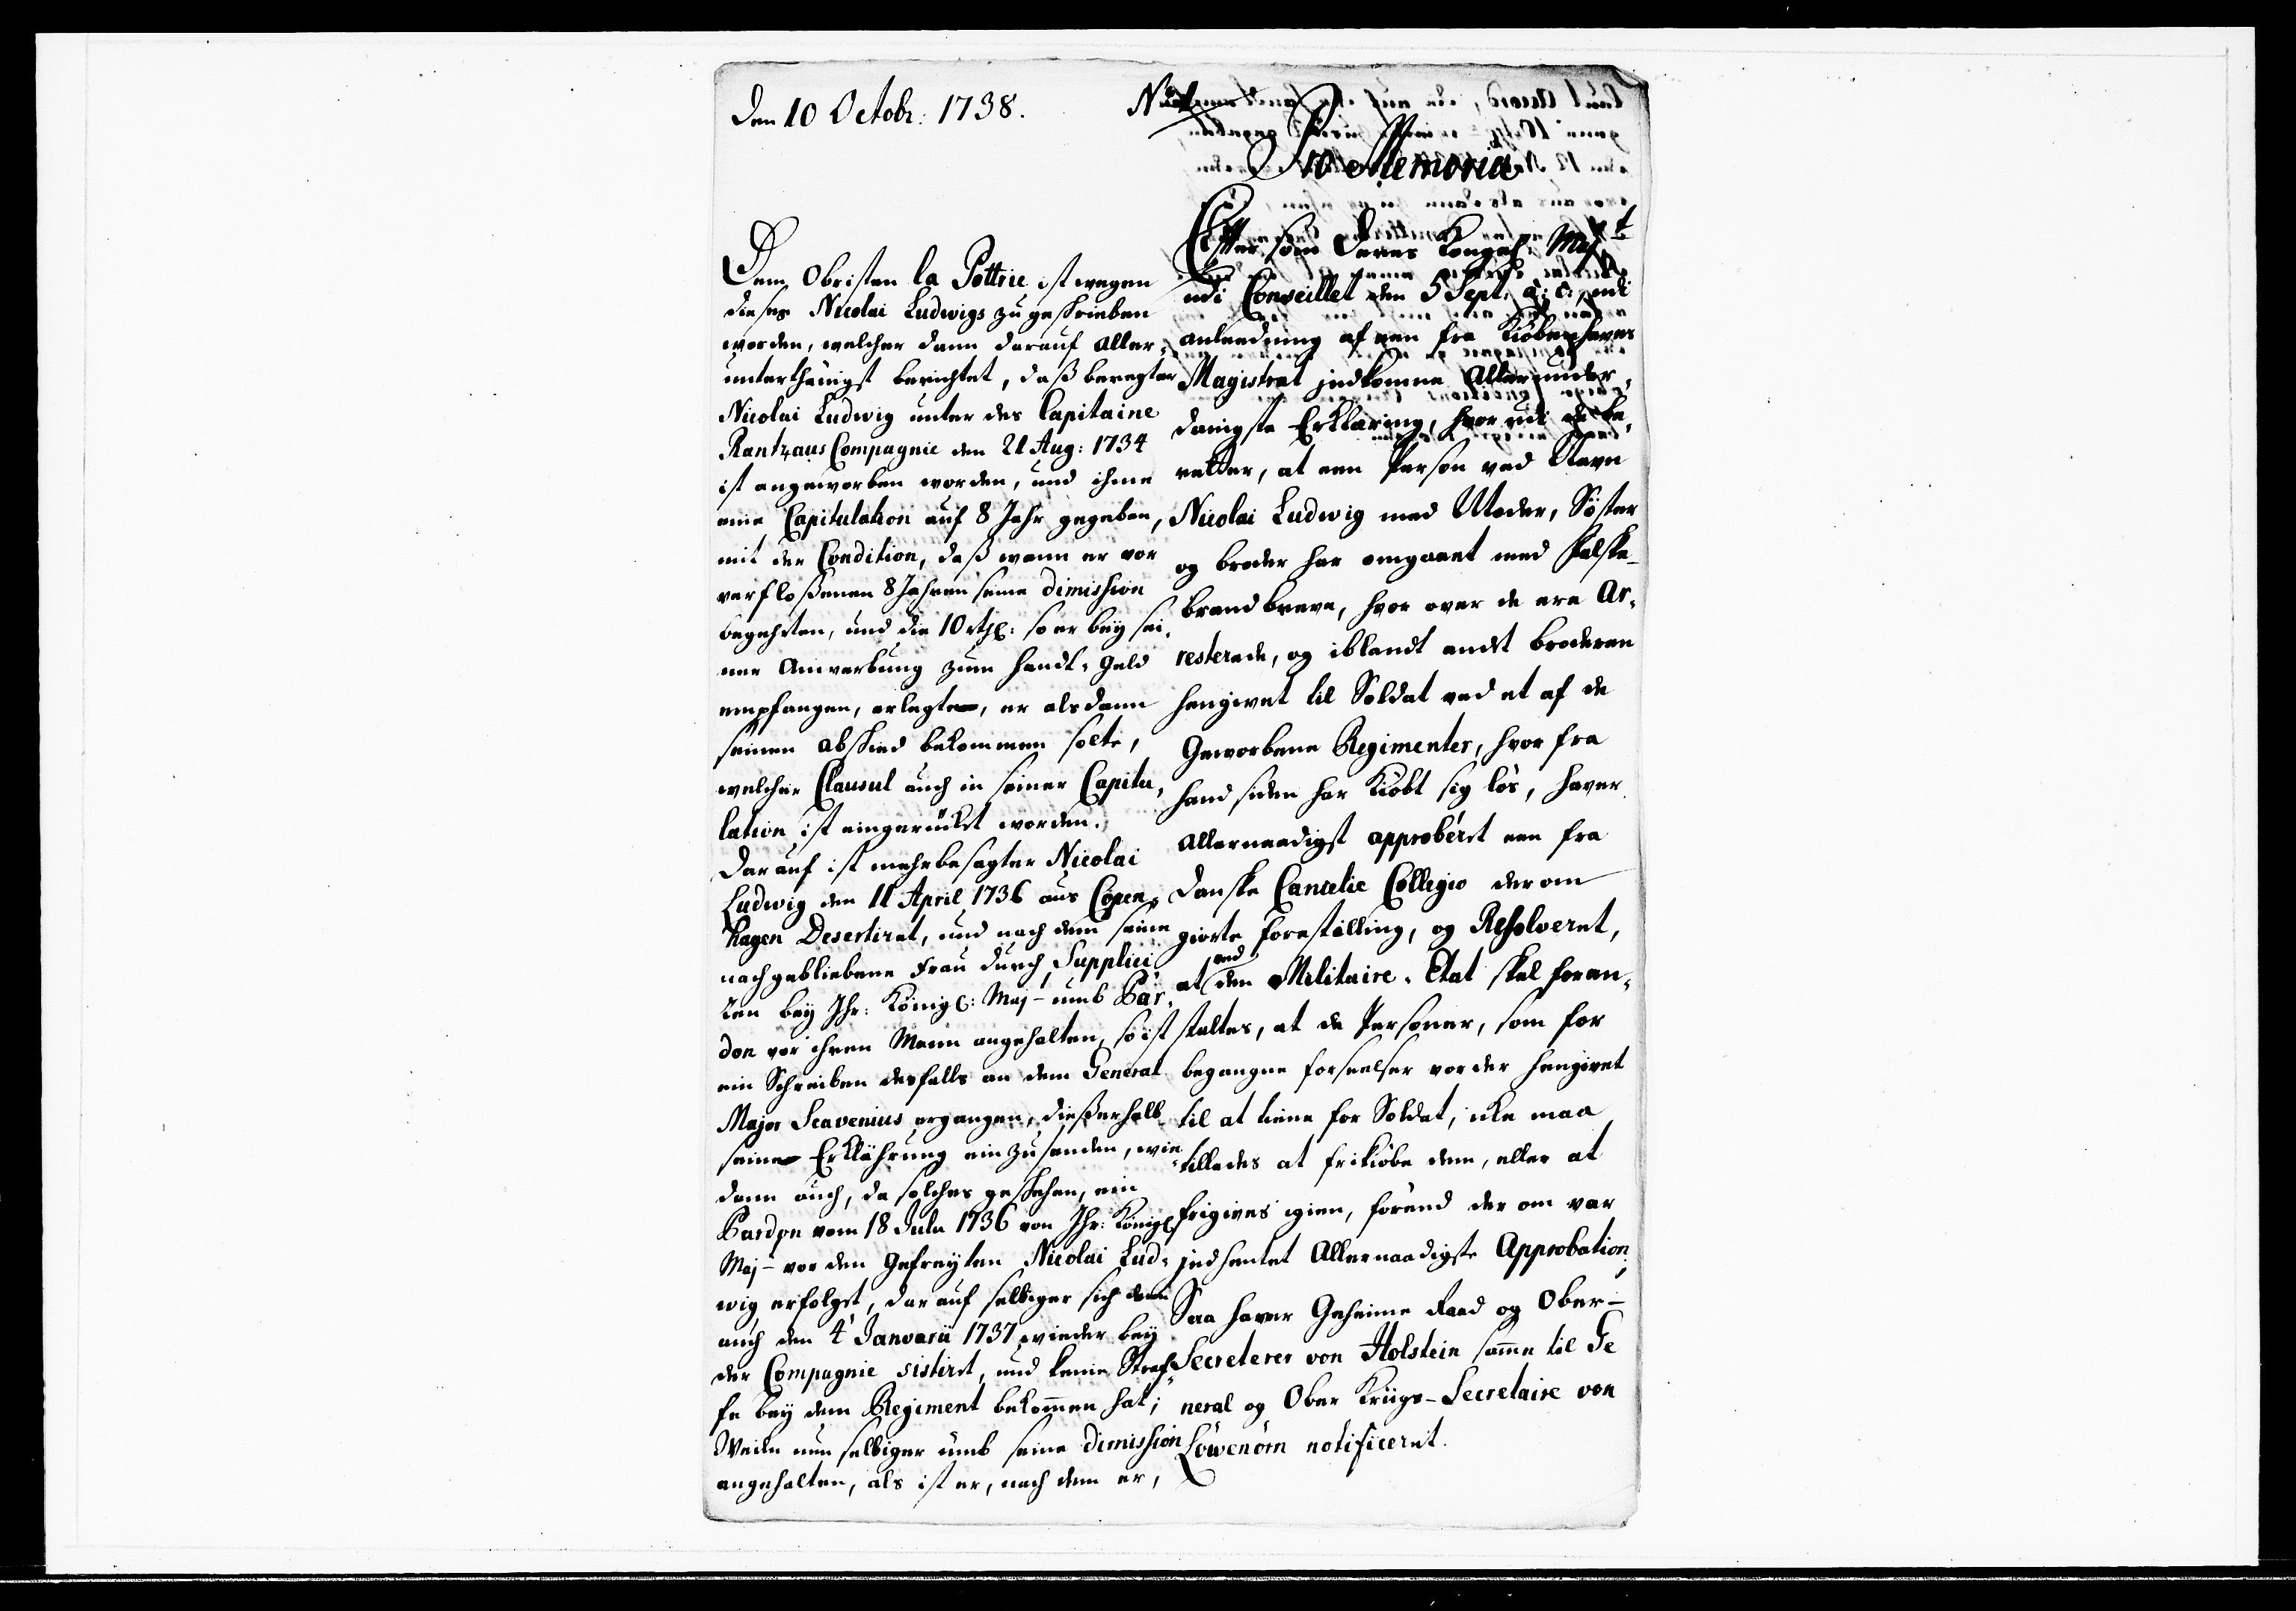 Den 10 Octobr: 1738.
Dem Obristen la Pottrie ist wegen
dieses Nicolai Ludwigs zugeschrieben
worden, welcher dann darauf aller-
unterthänigst berichtet, daß beregter
Nicolai Ludwig unter des Capitaine
Rantzaus Compagnie den 21 Aug: 1734
ist angeworben worden, und ihme
eine Capitulation auf 8 Jahr gegeben,
mit der Condition, daß wann er vor
verfloßenen 8 Jahren seine dimission
begehrten, und die 10 rthl: so er bey sei-
ner Anwerbung zum Handt-Geld
empfangen, erlegte, er alsdann
seinen abschied bekommen solte,
welcher Clausul auch in seiner Capitu-
lation ist eingerückt worden.
Darauf ist mehrbesagter Nicolai
Ludwig den 11 April 1736 aus Copen-
hagen Desertiret, und nach dem seine
nachgebliebene Frau durch Supplici
ren bey Ihr: Königl: Maj- umb Par-
don vor ihren Mann angehalten, so ist
ein Schreiben desfalls an dem General
Major Scavenius ergangen, dießerhalb
seine Erklährung einzusenden, wie
dann auch, da solches geschehen, ein
Pardon vom 18 Julii 1736 von Ihr: Königl
Maj- vor den Gefreyten Nicolai Lud-
wig erfolget, darauf selbiger sich denn
auch den 4 Januarii 1737 wieder bey
der Compagnie sistirt, und keine Straf-
fe bey dem Regiment bekommen hat;
Weilen nun selbiger umb seine dimission
angehalten, als ist er, nach dem er,
Pro Memoria
Efter som Deres Kongel: Maj:t
udi Conseillet den 5 Sept: a: c: udi
anleedning af een fra Kiøbenhavns
Magistrat indkomne Allerunder-
danigste Erklæring, hvor udi de be-
retter, at een Person ved Navn
Nicolai Ludwig med Moder, Søster
og broder har omgaaet med falske
brandbreve, hvor over de ere Ar-
resterede, og iblandt andet broderen
hengivet til Soldat ved et af de
Geworbene Regimenter, hvor fra
hand siden har Kiøbt sig løs, haver
allernaadigst approberet een fra
danske Cancelie Collegio der om
giorte forestilling, og Resolveret,
at ved den Militaire-Etat skal foran-
staltes, at de Personer, som for
begangne forseelser vorder hengivet
til at tiene for Soldat, icke maa
tillades at frikiøbe dem, eller at
frigives igien, førend der om var
indhentet Allernaadigste Approbation;
Saa haver Geheime Raad og Ober-
Secreterer von Holstein samme til Ge
neral og Ober Kriigs-Secretaire von
Löwenörn notificeret.